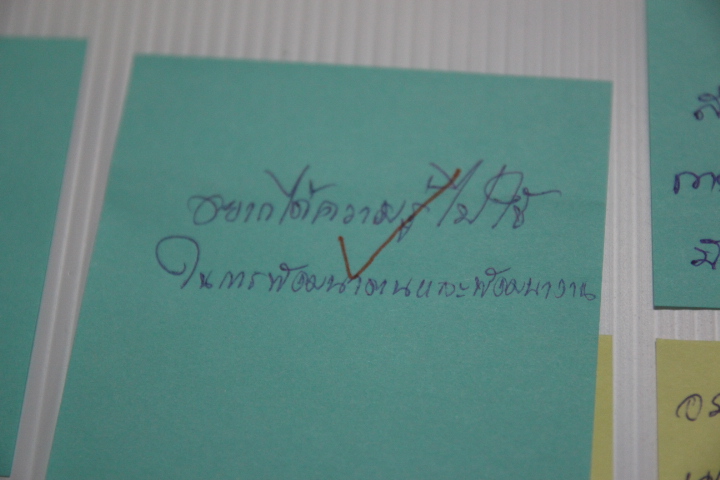 อยากได้ความรู้ไปใช้
ในการพัฒนาตนและพัฒนางาน